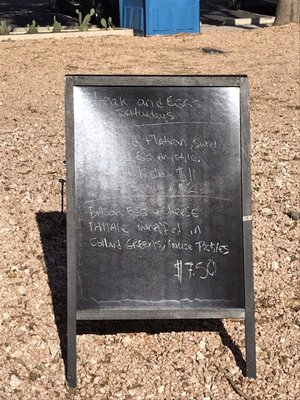 eak and Eggs
Saturdays
Flatiron, Sweet
Egg anystyle,
$11
$2
Bacon Egg & cheese
TAMALE wrapped in
Collard GREENS, House Pickles
$7.50